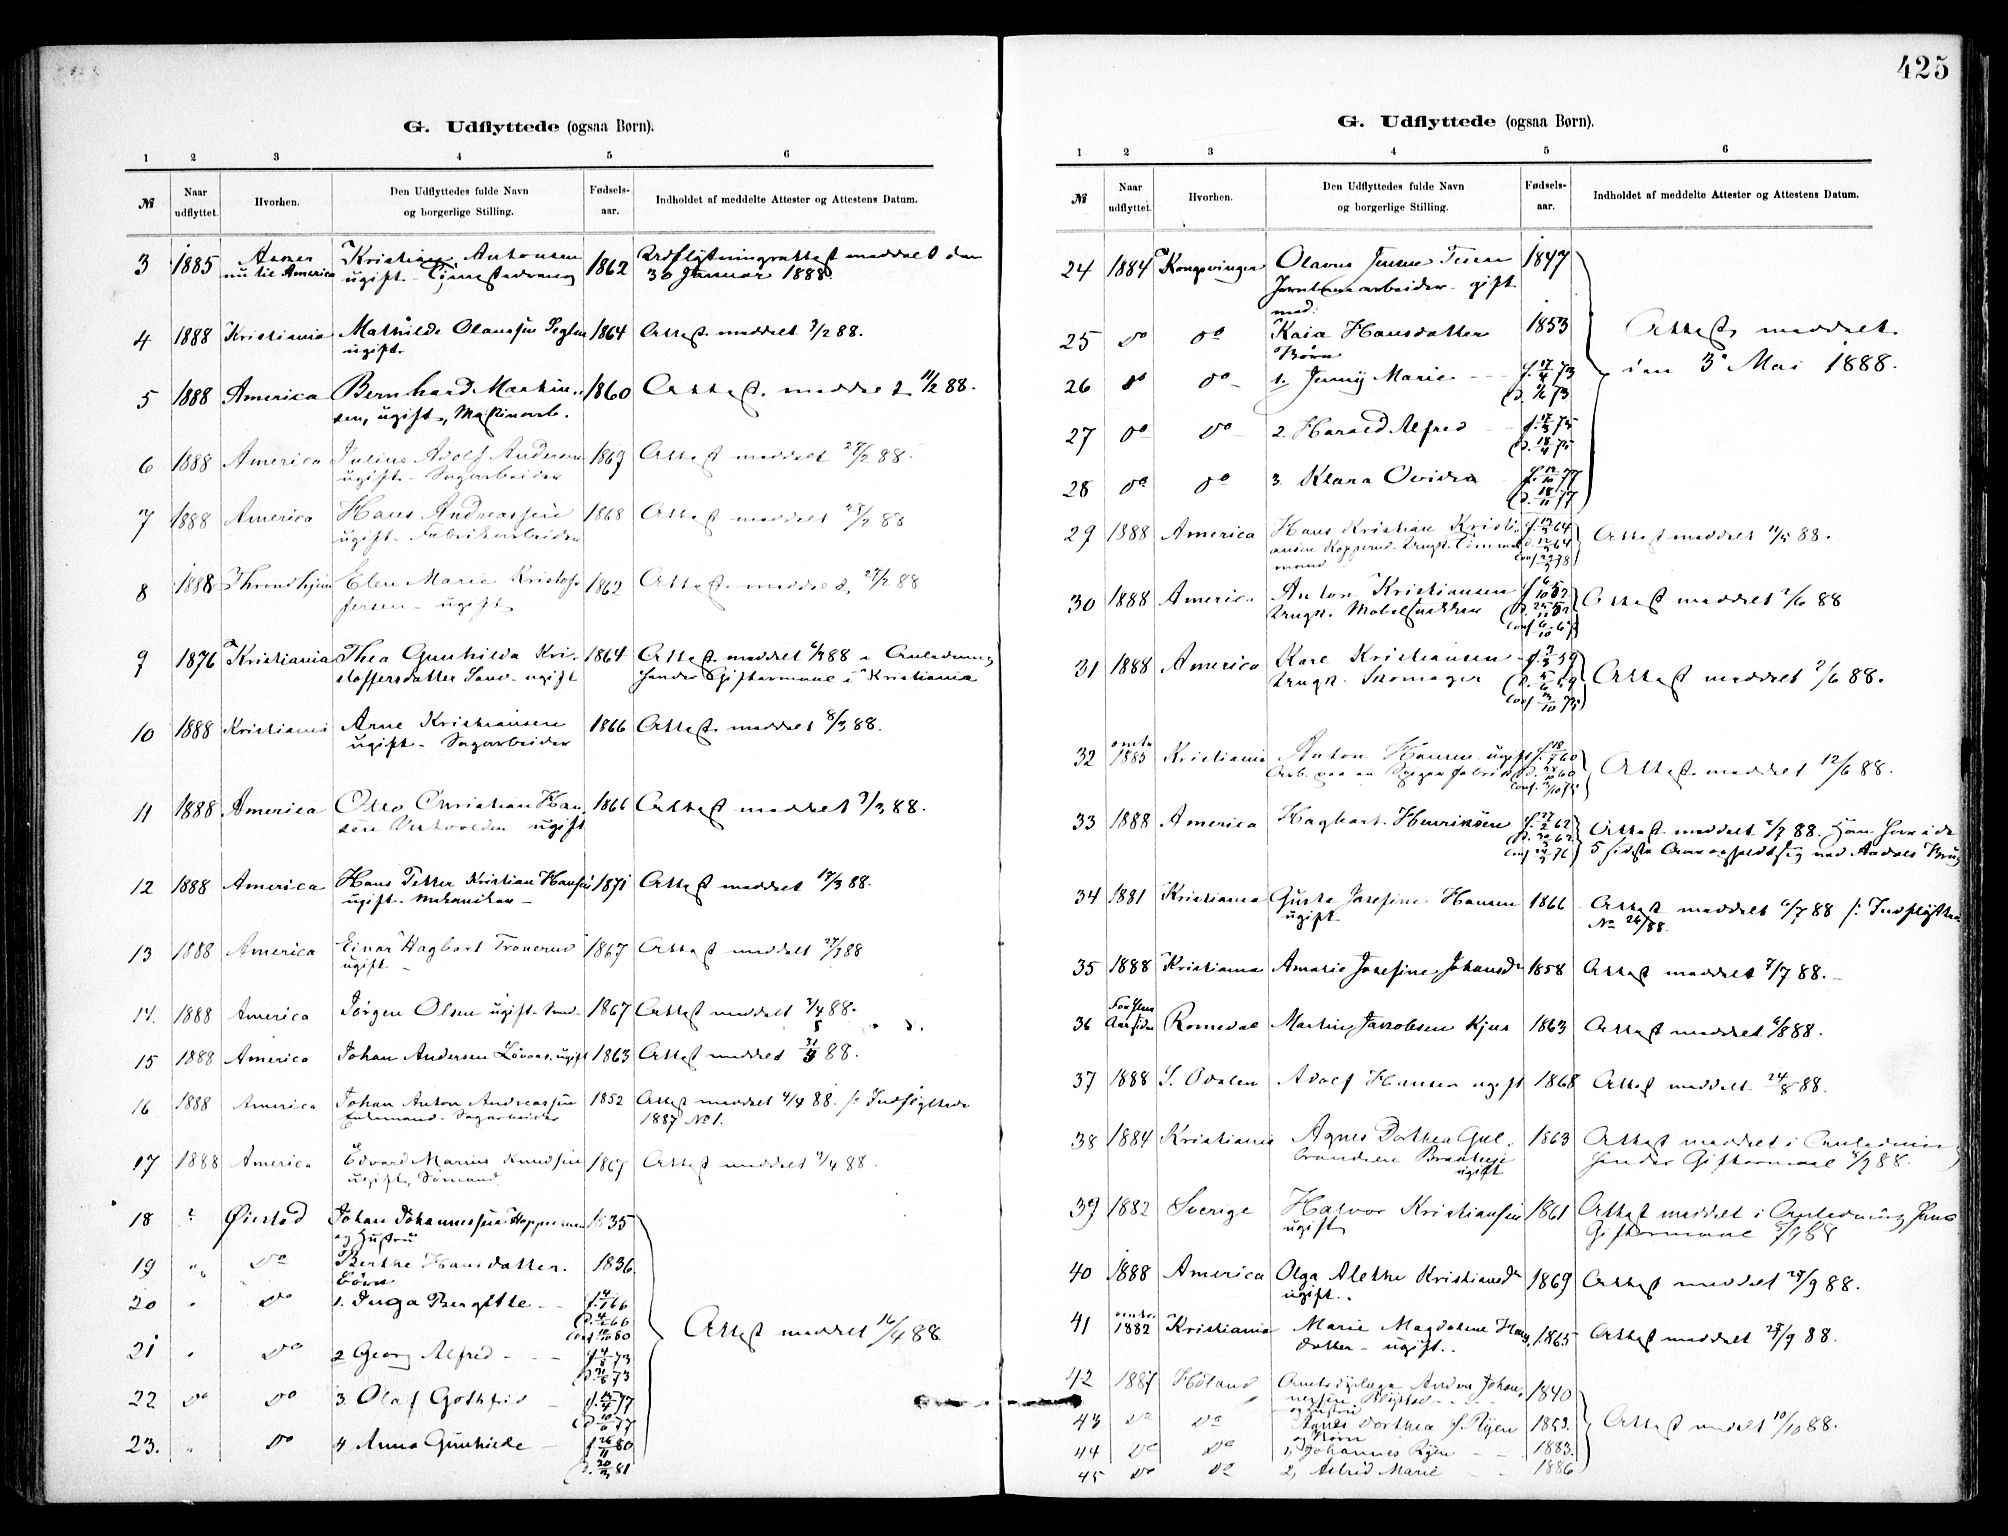 G. Udflyttede (ogsaa Børn).
1 2 3 4 5 6
№ Naar udflyttet. Hvorhen. Den Udflyttedes fulde Navn og borgerlige Stilling. Fødsels-aar. Indholdet af meddelte Attester og Attestens Datum.
3 1885 Asker Kristian Antonsen 1862 Udflytningsattest meddelt den
nu til America ugift 30 Januar 1888.
4 1888 Kristiania Mathilde Olaussen 1864 Attest meddelt 7/2 88.
ugift.
5 1888 America Bernhard Martin- 1860 Attest meddelt 11/2 88.
sen, ugift, Maskinarb.
6 1888 America Julius Adolf Andersen 1867 Attest meddelt 27/2 88.
ugift - Sagarbeider
7 1888 America Hans Andreassen 1868 Attest meddelt 28/2 88
ugift - Fabrikarbeider
8 1888 Throndhjem Elen Marie Kristof- 1862 Attest meddelt 27/2 88
fersen - ugift
9 1876 Kristiania Thea Gunhilda Kri- 1864 Attest meddelt 6/3 88 i Anledning
stoffersdatter - ugift hendes Giftermaal i Kristiania
10 1888 Kristiania Arne Kristiansen 1866 Attest meddelt 8/3 88.
ugift - Sagarbeider
11 1888 America Otto Christian Han- 1866 Attest meddelt 9/3 88.
sen ugift
12 1888 America Hans Petter Kristian Hansen 1871 Attest meddelt 17/3 88.
ugift - Mekaniker -
13 1888 America Einar Hagbart Tronerud 1867 Attest meddelt 27/3 88
ugift -
14. 1888 America Jørgen Olsen ugift - 1867 Attest meddelt 3/4 88.
15 1888 America Johan Andersen ugift 1863 Attest meddelt 88.
16 1888 America Johan Anton Andreassen 1852 Attest meddelt 4/4 88. Indflyttede
Enkemand - Sagarbeider 1887 No 1.
17 1888 America Edvard Marius Knudsen 1867 Attest meddelt 9/4 88.
ugift, Sømand
18 Øiestad Johan Johannessen 1835
og Hustru
19 " do Berthe Hansdatter. 1836
Børn
20 " do 1. Inga Bergitte - Attest meddelt 16/4 88
21 " do 2 Georg Alfred - - -
22 do do 3. Olaf Gothfrid -
23. " do 4 Anna Gunhilde -
425
G. Udflyttede (ogsaa Børn).
1 2 3 4 5 6
№ Naar udflyttet. Hvorhen. Den Udflyttedes fulde Navn og borgerlige Stilling. Fødsels-aar. Indholdet af meddelte Attester og Attestens Datum.
24 1884 Kongsvinger Olavus Jensen 1847
Jernbanearbeider - gift
med:
25 do do Kaia Hansdatter 1853 Attest meddelt
Børn
26 do do 1. Jenny Marie - - den 3 Mai 1888.
27 do do 2. Harald Alfred
28 do do 3. Klara Ovidia
29 1888 America Hans Kristian Kristi- Attest meddelt 11/5 88.
ansen Kopperud
30 1888 America Anton Kristiansen Attest meddelt 2/6 88
31 1888 America Karl Kristiansen Attest meddelt 2/6 88.
Skomager
32 omtr 1885 Kristiania Anton Hansen ugift Attest meddelt 12/6 88.
33 1888 America Hagbart Henriksen Attest meddelt 2/7 88. Han har i de
5 sidste Aar opholdt sig ved Aadals Brug
34 1881 Kristiania Gusta Josefine Hansen 1866 Attest meddelt 6/7 88 Indflyttede
ugift No 26/88.
35 1888 Kristiania Amalie Josefine Johansdr 1858 Attest meddelt 9/7 88. -
36 Aar siden Romedal Martin Jacobsen Kjus 1863 Attest meddelt 6/8 88.
37 1888 S. Odalen Adolf Hansen ugift 1868 Attest meddelt 24/8 88.
38 1884 Kristiania Agnes Dorthea Gul- 1863 Attest meddelt i Anledning
brandsen ugift hendes Giftermaal 8/9 88.
39 1882 Sverige Halvor Kristiansen 1861 Attest meddelt i Anledning hans
ugift Giftermaal 88
40 1888 America Olga Alethe Kristiansdr 1869 Attest meddelt 28/9 88.
ugift.
41 omtr. 1882 Kristiania Marie Magdalene Hans- 1865 Attest meddelt 28/9 88.
datter - ugift.
42 1887 Høland Anders Johan- 1840
nessen
og Hustru
43 do do Agnes Dorthea f. Ryen 1853. Attest meddelt 10/10 88.
og Børn
44 do do 1, Johannes Ryen 1883.
45 do do 2, Astrid Marie - - 1886